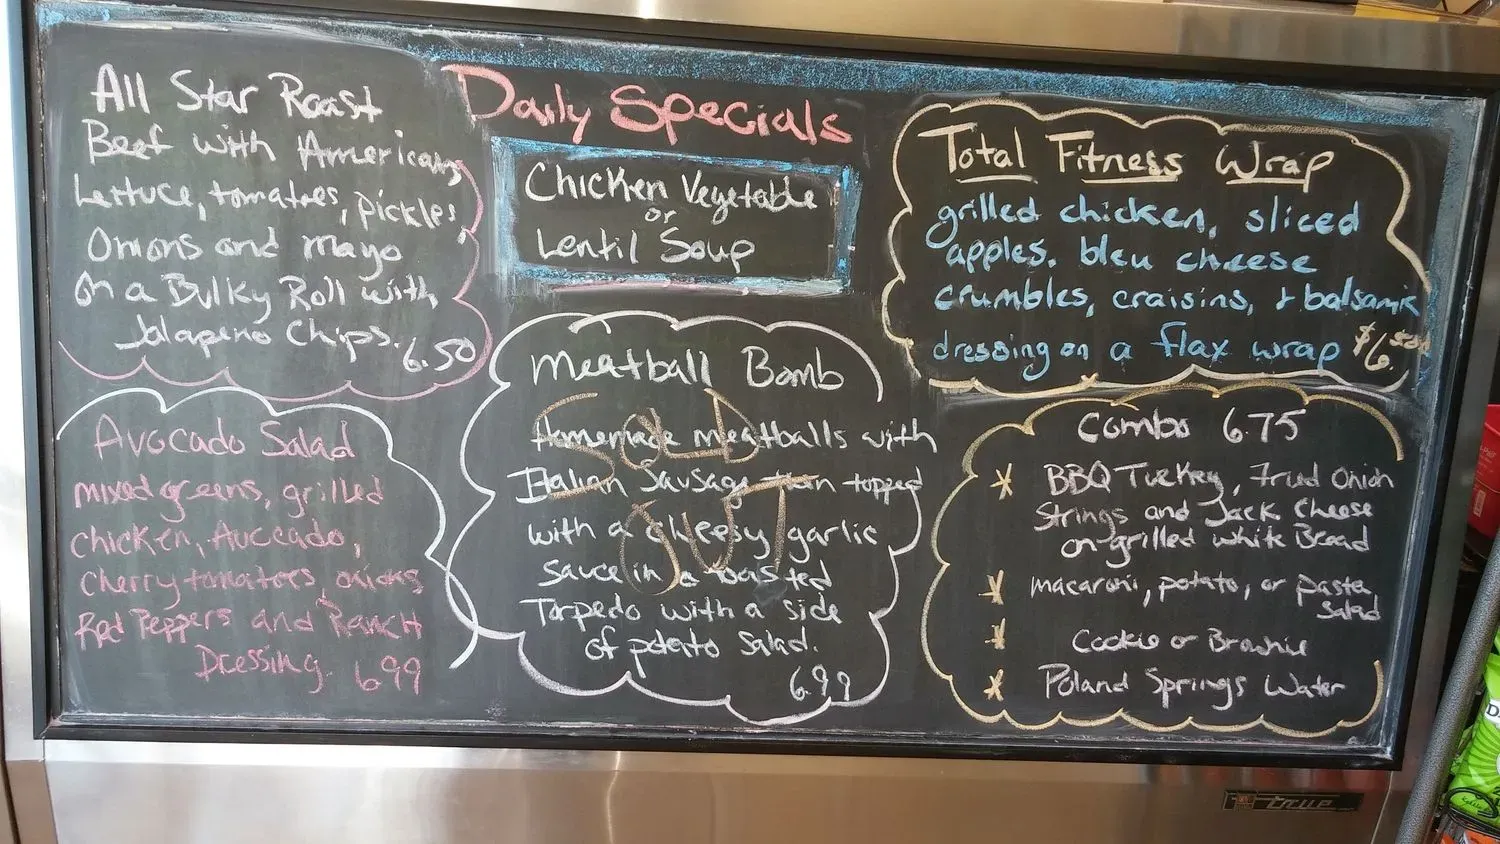 Daily Specials
All Star Roast
Beef with American
Lettuce, tomatoes, pickles,
Onions and mayo
On a Bulky Roll with
Jalapeno Chips.
6.50
Chicken Vegetable
or
Lentil Soup
Total Fitness Wrap
grilled chicken, sliced
apples, bleu cheese
crumbles, craisins, + balsamic
dressing on a flax wrap
$6.
Avocado Salad
mixed greens, grilled
chicken, Avocado,
Cherry tomatoes, onions
Red Peppers and Ranch
Dressing. 6.99
Meatball Bomb
Homemade meatballs with
Italian Sausage then topped
with a cheesy garlic
sauce in a toasted
Torpedo with a side
of potato salad.
6.99
SOLD
OUT
Combo 6.75
BBQ Turkey, Fried Onion
Strings and Jack Cheese
on grilled white Bread
macaroni, potato, or pasta
salad
Cookie or Brownie
Poland Springs Water
true